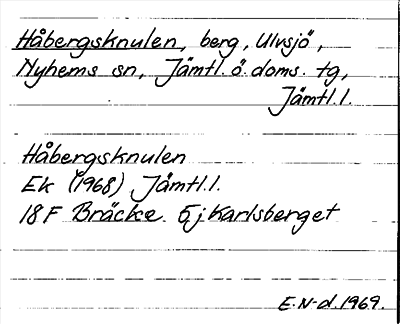 Håbergsknulen, berg, Ulvsjö,
Nyhems sn, Jämtl. ö. doms. tg,
Jämtl. l.
Håbergsknulen
Ek (1968) Jämtl. l.
18 F Bräcke 5 j Karlsberget
E. N-d. 1969.